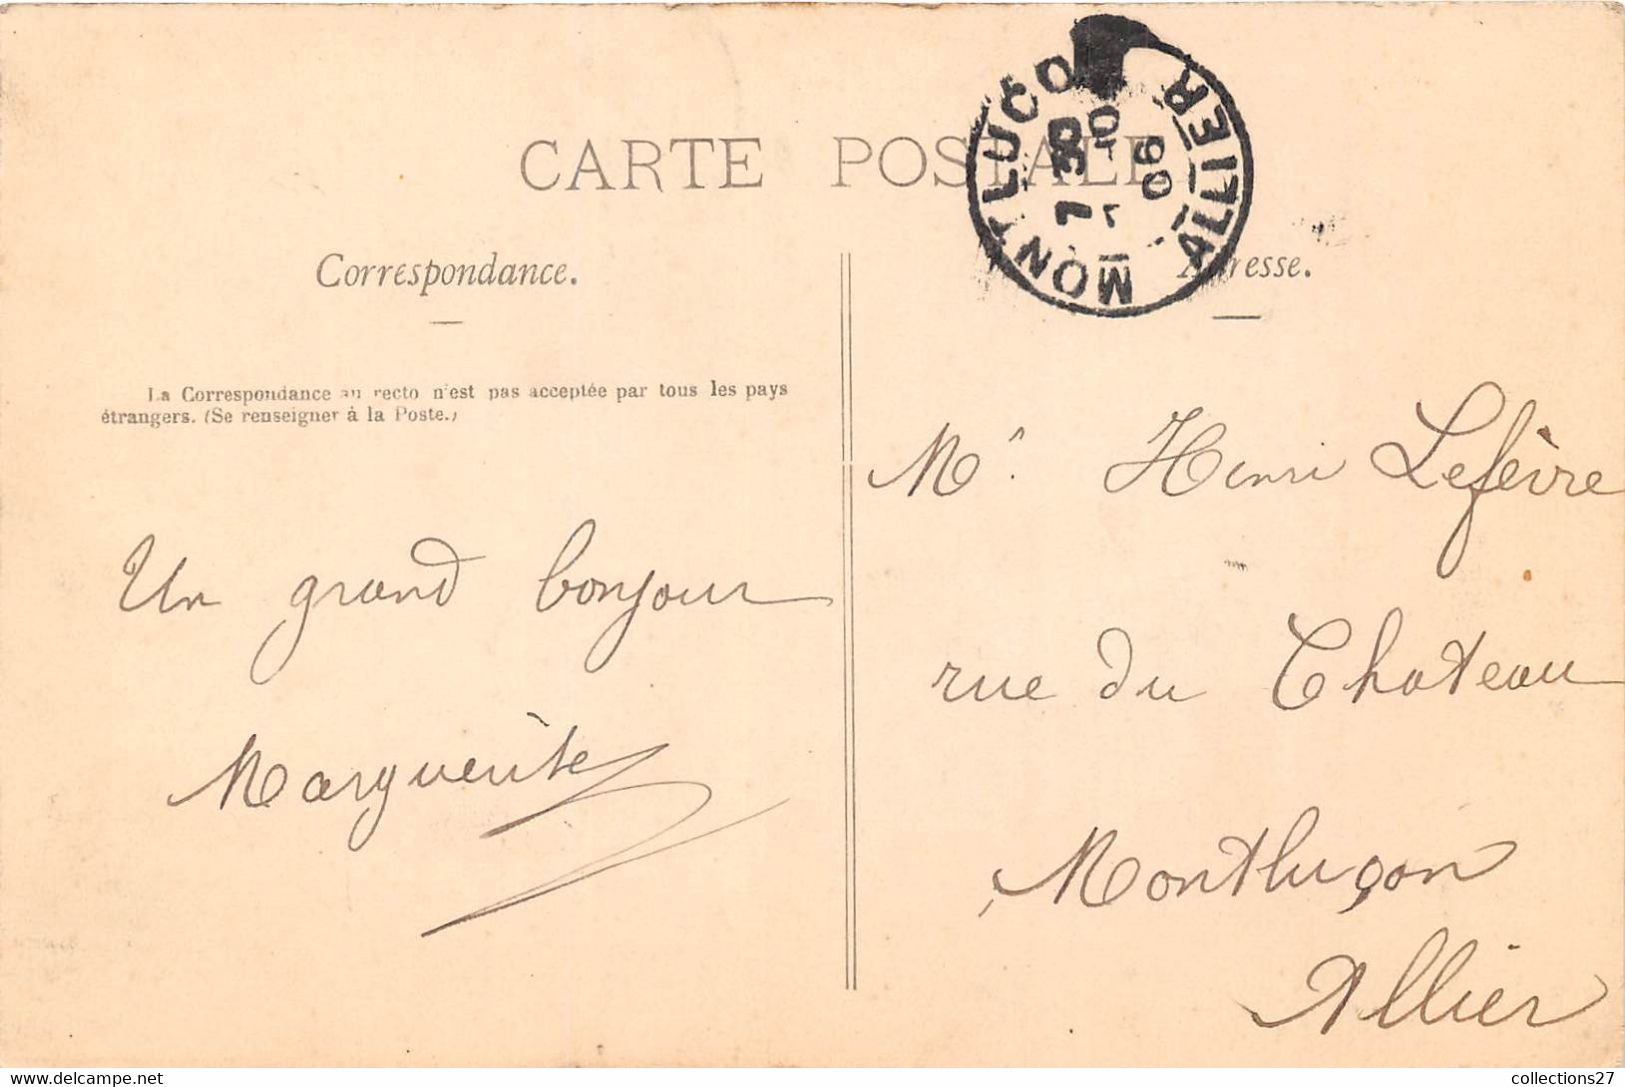 CARTE POSTALE
MONTLUÇON ALLIER
7 30
06
Correspondance.
Adresse.
La Correspondance au recto n'est pas acceptée par tous les pays
étrangers. (Se renseigner à la Poste.)
Un grand bonjour
Marguerite
Mr. Henri Lefèvre
rue du Chateau
Montluçon
Allier
https://www.delcampe.net
collections27